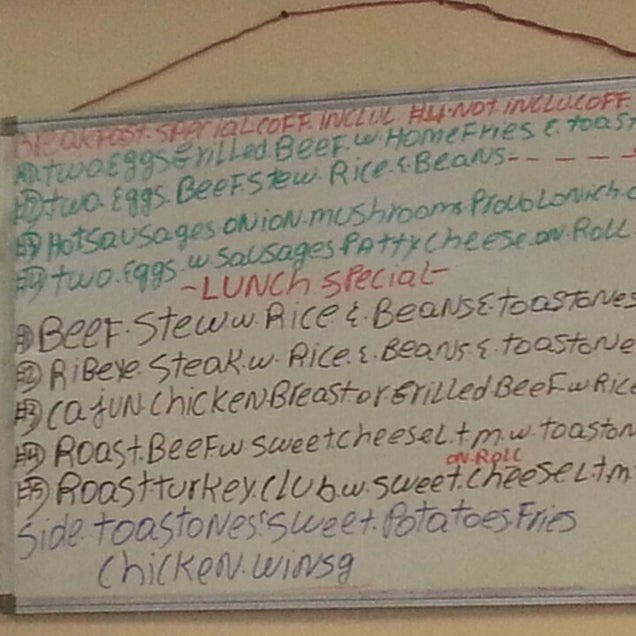 BreakFast. SPecial COFF. INCLUL. H4. NOT. INCLU. COFF.
#1) two Eggs Grilled BeeF. w. HomeFries & toast
#2) two. Eggs. BeeF. Stew. Rice. & Beans- - - - -
#3) Hot Sausages ONioN. mushrooms
#4) two. Eggs. w. Sausages Patty cheese. on. Roll
~LUNCH SPecial~
#1) BeeF. Stew w. Rice &. Beans & toastones
#2) RiBeye. Steak. w. Rice. &. Beans. & toastone
#3) CaJUN ChickeN Breast or Grilled BeeF w Rice
#4) Roast. BeeF. w. sweet cheese L. t. m. w. toaston
ON. Roll
#5) Roast turkey. Club. w. sweet. cheese L. t. m
Side. toastones. Sweet. Potatoes. Fries
Chicken. winsg